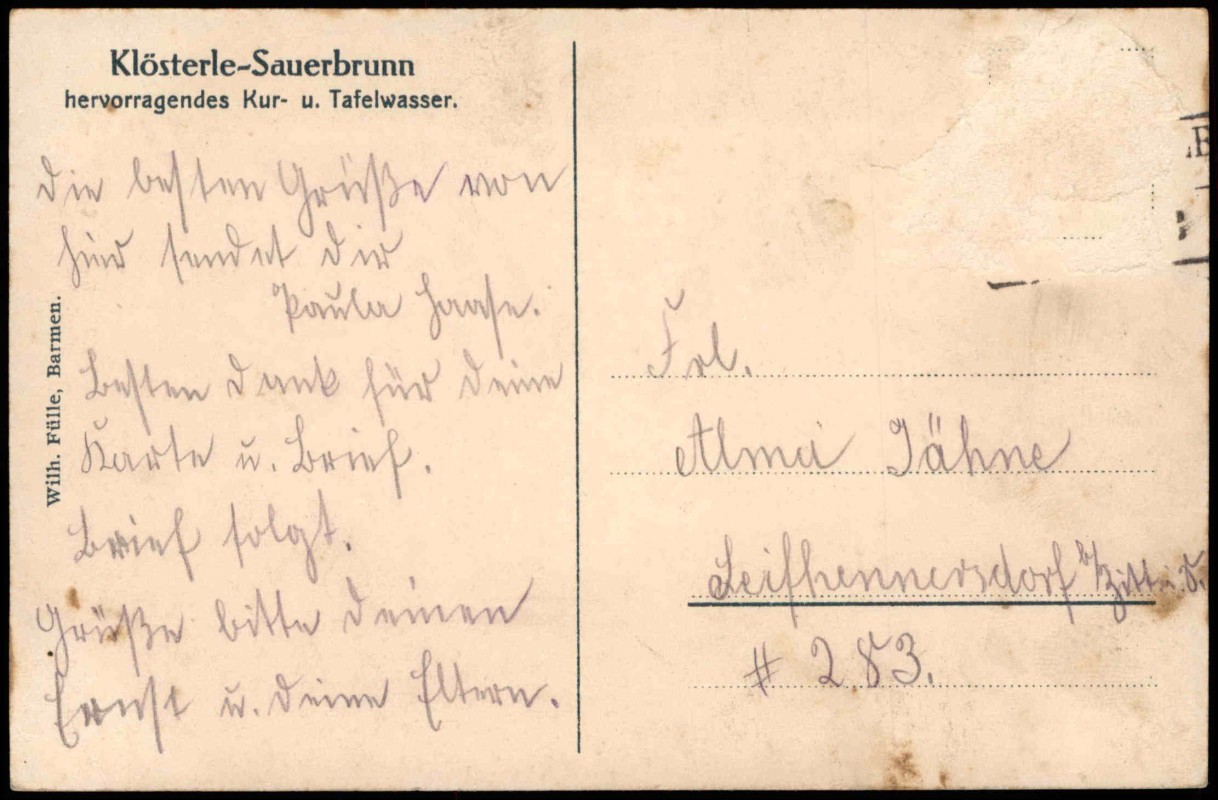 Klösterle-Sauerbrunn
hervorragendes Kur- u. Tafelwasser.
Die besten Grüße von
hier sendet dir
Paula Haase.
Besten Dank für deine
Karte u. Brief.
Brief folgt.
Grüße bitte deinen
Ernst u. deine Eltern.
Wilh. Fülle, Barmen.
Frl.
Alma Jähne
Leifhennersdorf b/Zitt i. S.
# 283.